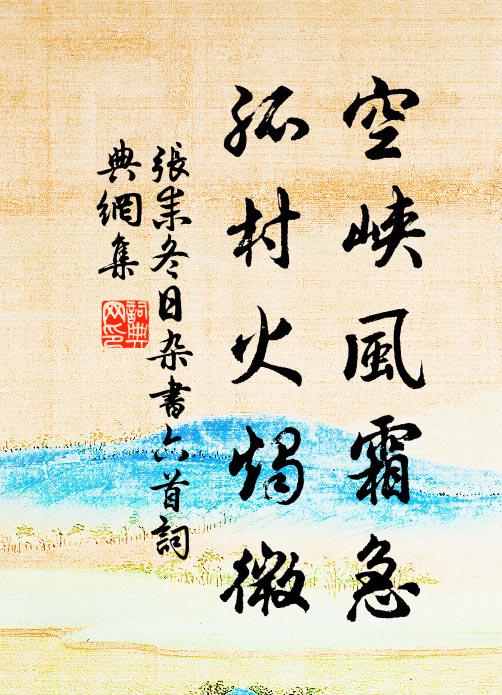 空峽風霜急
孤村火燭微
張耒冬日杂書六首詞
典網集
詞典网印